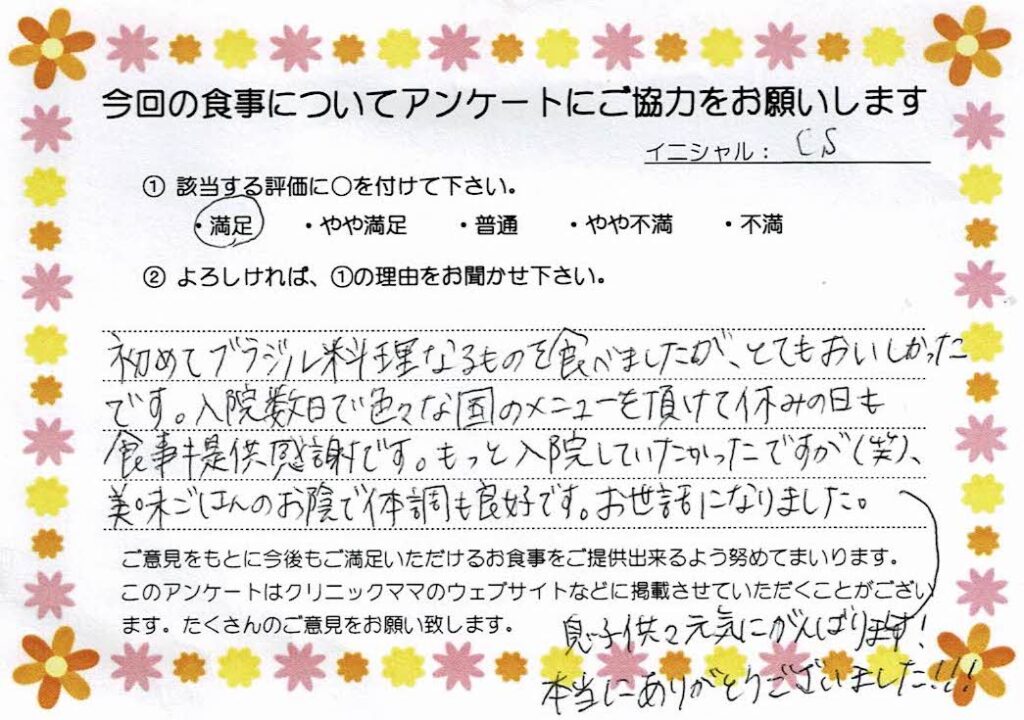 今回の食事についてアンケートにご協力をお願いします
イニシャル： CS
① 該当する評価に○を付けて下さい。
・満足 ・やや満足 ・普通 ・やや不満 ・不満
② よろしければ、①の理由をお聞かせ下さい。
初めてブラジル料理なるものを食べましたが、とてもおいしかった
です。入院数日で色々な国のメニューを頂けて休みの日も
食事提供感謝です。もっと入院していたかったですが(笑)、
美味ごはんのお陰で体調も良好です。お世話になりました。
ご意見をもとに今後もご満足いただけるお食事をご提供出来るよう努めてまいります。
このアンケートはクリニックママのウェブサイトなどに掲載させていただくことがござい
ます。たくさんのご意見をお願い致します。
息子供々元気にがんばります!
本当にありがとうございました!!!